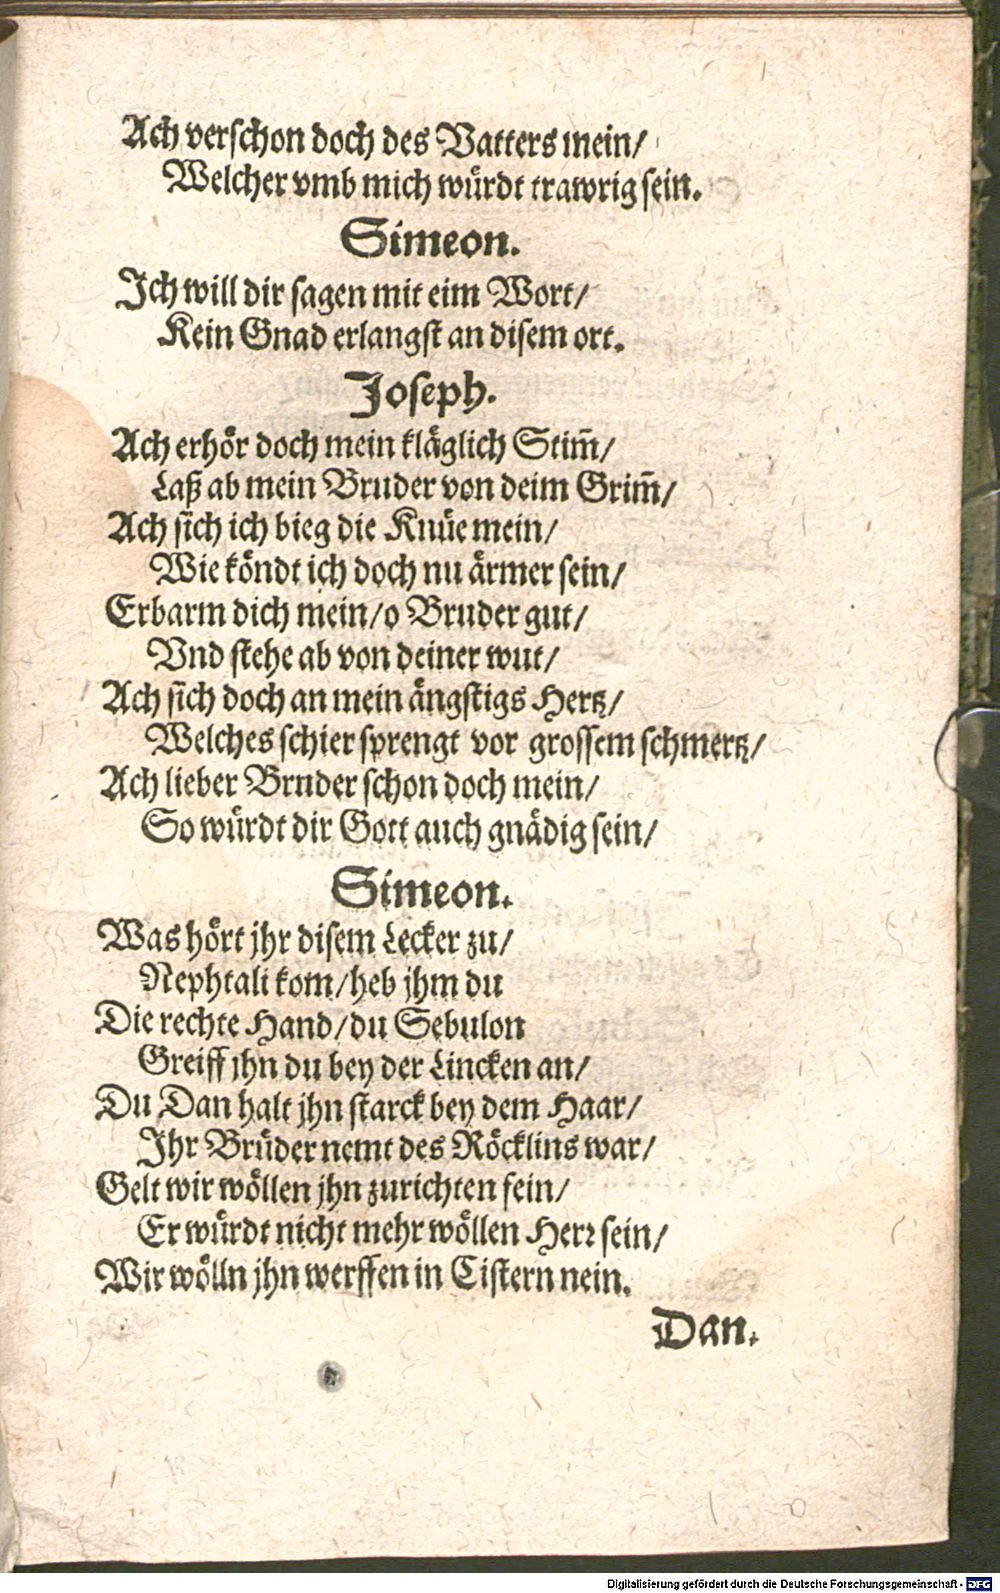 Ach verschon doch des Vatters mein/
Welcher vmb mich würdt trawrig sein.
Simeon.
Ich will dir sagen mit eim Wort/
Kein Gnad erlangst an disem ort.
Joseph.
Ach erhör doch mein kläglich Stim̃/
Laß ab mein Bruder von deim Grim̃/
Ach sich ich bieg die Knüe mein/
Wie köndt ich doch nu ärmer sein/
Erbarm dich mein/o Bruder gut/
Vnd stehe ab von deiner wut/
Ach sich doch an mein ängstigs Hertz/
Welches schier sprengt vor grossem schmertz/
Ach lieber Brnder schon doch mein/
So würdt dir Gott auch gnädig sein/
Simeon.
Was hört jhr disem Lecker zu/
Nephtali kom/heb jhm du
Die rechte Hand/du Sebulon
Greiff jhn du bey der Lincken an/
Du Dan halt jhn starck bey dem Haar/
Ihr Brüder nemt des Röcklins war/
Gelt wir wöllen jhn zurichten fein/
Er würdt nicht mehr wöllen Herr sein/
Wir wölln jhn werffen in Cistern nein.
Dan.
Digitalisierung gefördert durch die Deutsche Forschungsgemeinschaft - DFG